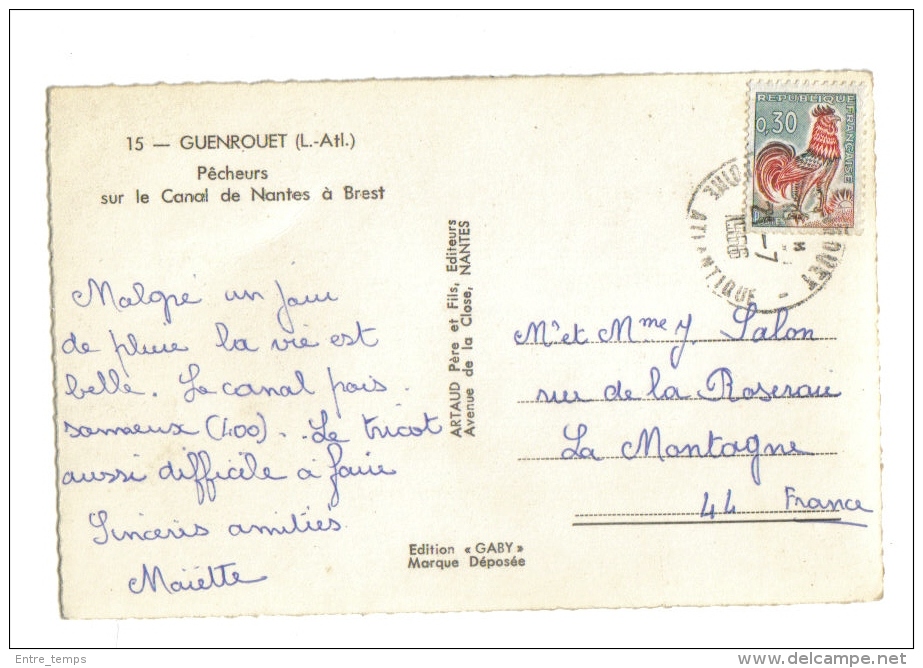 15 — GUENROUET (L.-Atl.)
Pêcheurs
sur le Canal de Nantes à Brest
Malgré un jour
de pluie la vie est
belle. Le canal pois.
sonneux (400). Le tricot
aussi difficile à faire
Sincères amitiés
Maïette
ARTAUD Père et Fils, Editeurs
Avenue de la Close, NANTES
Edition « GABY »
Marque Déposée
REPUBLIQUE FRANÇAISE
0,30
LOIRE ATLANTIQUE
-7
1966
Mr et Mme J. Salon
rue de la Roseraie
La Montagne
44 France
Entre_temps
www.delcampe.net